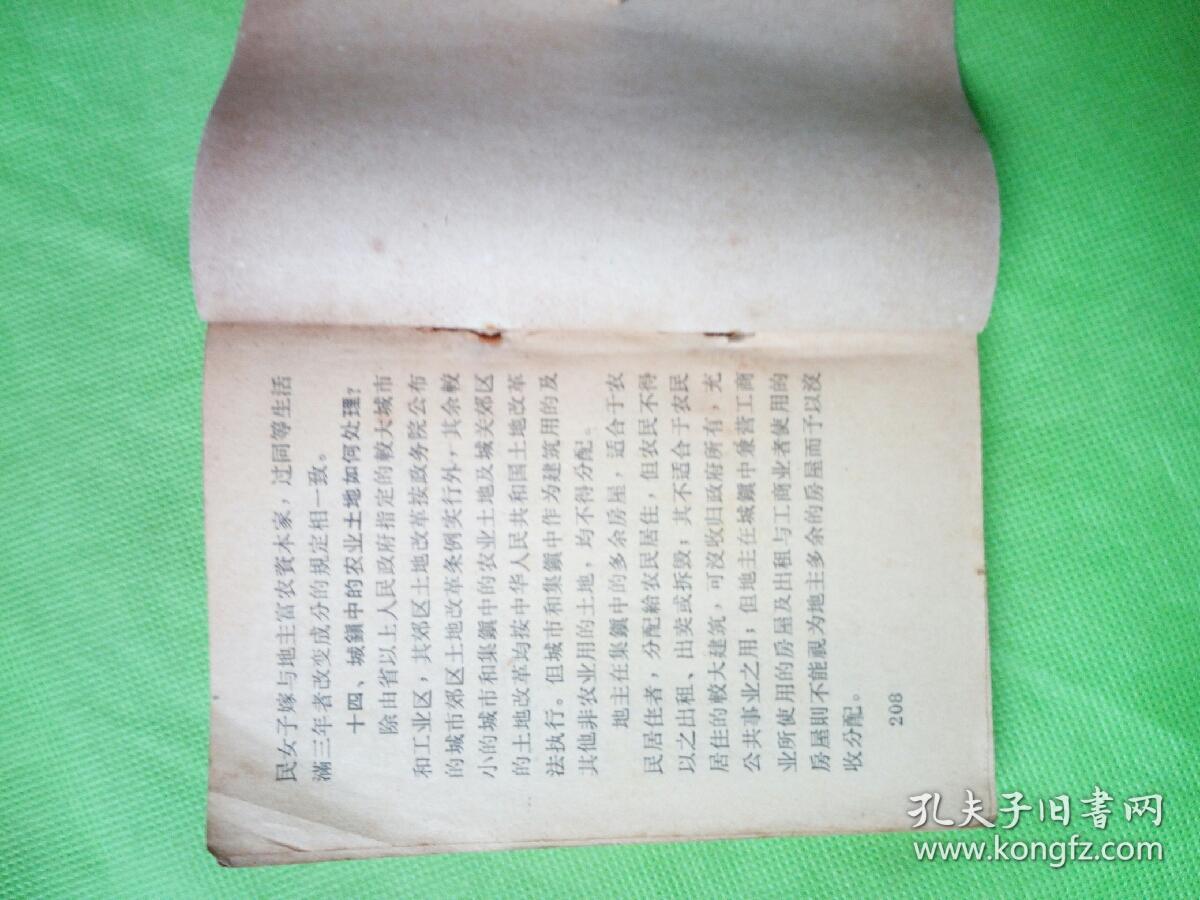 民女子嫁与地主富农資本家，过同等生活
滿三年者改变成分的規定相一致。
十四、城鎭中的农业土地如何处理？
除由省以上人民政府指定的較大城市
和工业区，其郊区土地改革按政务院公布
的城市郊区土地改革条例实行外，其余較
小的城市和集鎭中的农业土地及城关郊区
的土地改革均按中华人民共和国土地改革
法执行。但城市和集鎭中作为建筑用的及
其他非农业用的土地，均不得分配。
地主在集鎭中的多余房屋，适合于农
民居住者，分配給农民居住，但农民不得
以之出租、出卖或拆毁；其不适合于农民
居住的較大建筑，可沒收归政府所有，充
公共事业之用；但地主在城鎭中兼营工商
业所使用的房屋及出租与工商业者使用的
房屋則不能視为地主多余的房屋而予以沒
收分配。
208
孔夫子旧书网
www.kongfz.com